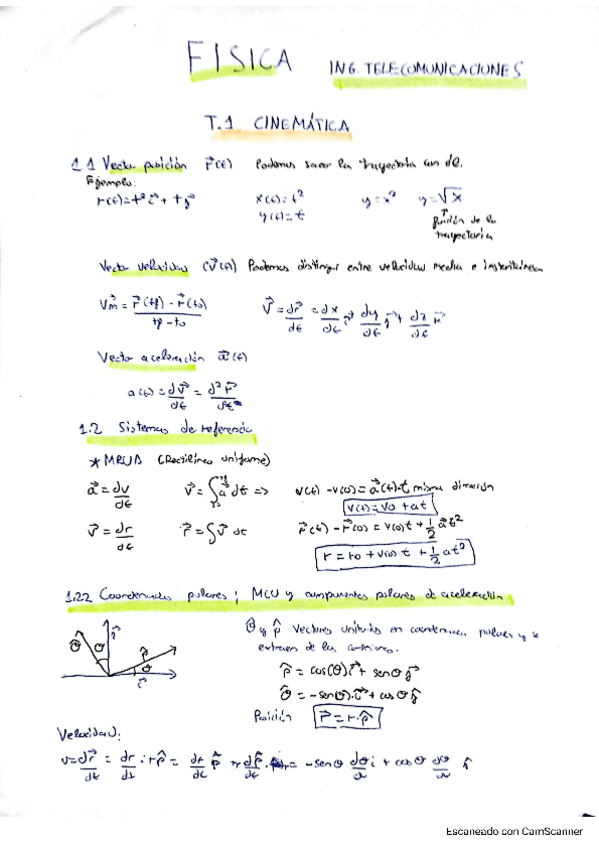 FISICA ING. TELECOMUNICACIONES
T.1 CINEMÁTICA
1.1 Vector posición r⃗(t) Podemos sacar la trayectoria con él.
Ejemplo:
r(t)=t²i⃗ + tj⃗ x(t)=t² y=x² y=√x
y(t)=t función de la
trayectoria
Vector velocidad (v⃗(t)) Podemos distinguir entre velocidad media e instantánea
Vm⃗ = r⃗(tf) - r⃗(t0) / tf - t0 v⃗ = dr⃗/dt = dx/dt i⃗ dy/dt j⃗ + dz/dt k⃗
Vector aceleración a⃗(t)
a(t) = dv⃗/dt = d²r⃗/dt²
1.2 Sistemas de referencia
* MRUA (Rectilíneo uniforme)
a⃗ = dv/dt v⃗ = ∫a⃗ dt => v(t) - v(0) = a⃗(t)·t misma dirección
v(t) = v0 + at
v⃗ = dr/dt r⃗ = ∫v⃗ dt r⃗(t) - r⃗(0) = v(0)t + 1/2 a⃗t²
r = r0 + v(0)t + 1/2 at²
1.2.2 Coordenadas polares; MCU y componentes polares de aceleración
θ̂ y ρ̂ vectores unitarios en coordenadas polares y se
extraen de los anteriores.
ρ̂ = cos(θ)i⃗ + senθ j⃗
θ̂ = -sen(θ)·i⃗ + cosθ j⃗
Posición r⃗ = r·ρ̂
Velocidad:
v = dr⃗/dt = dr/dt : rρ̂ = dr/dt ρ̂ + r dρ̂/dt = -senθ dθ/dt i + cosθ dθ/dt j
Escaneado con CamScanner